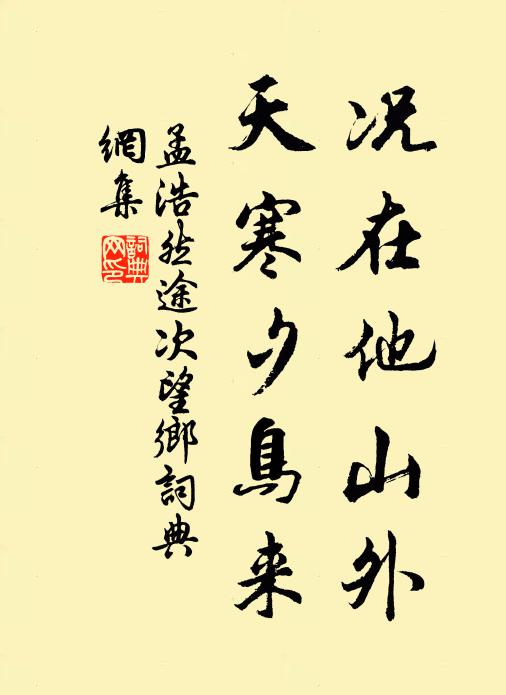 况在他山外
天寒夕鳥来
孟浩然途次望鄉詞典
網集
詞典
网印